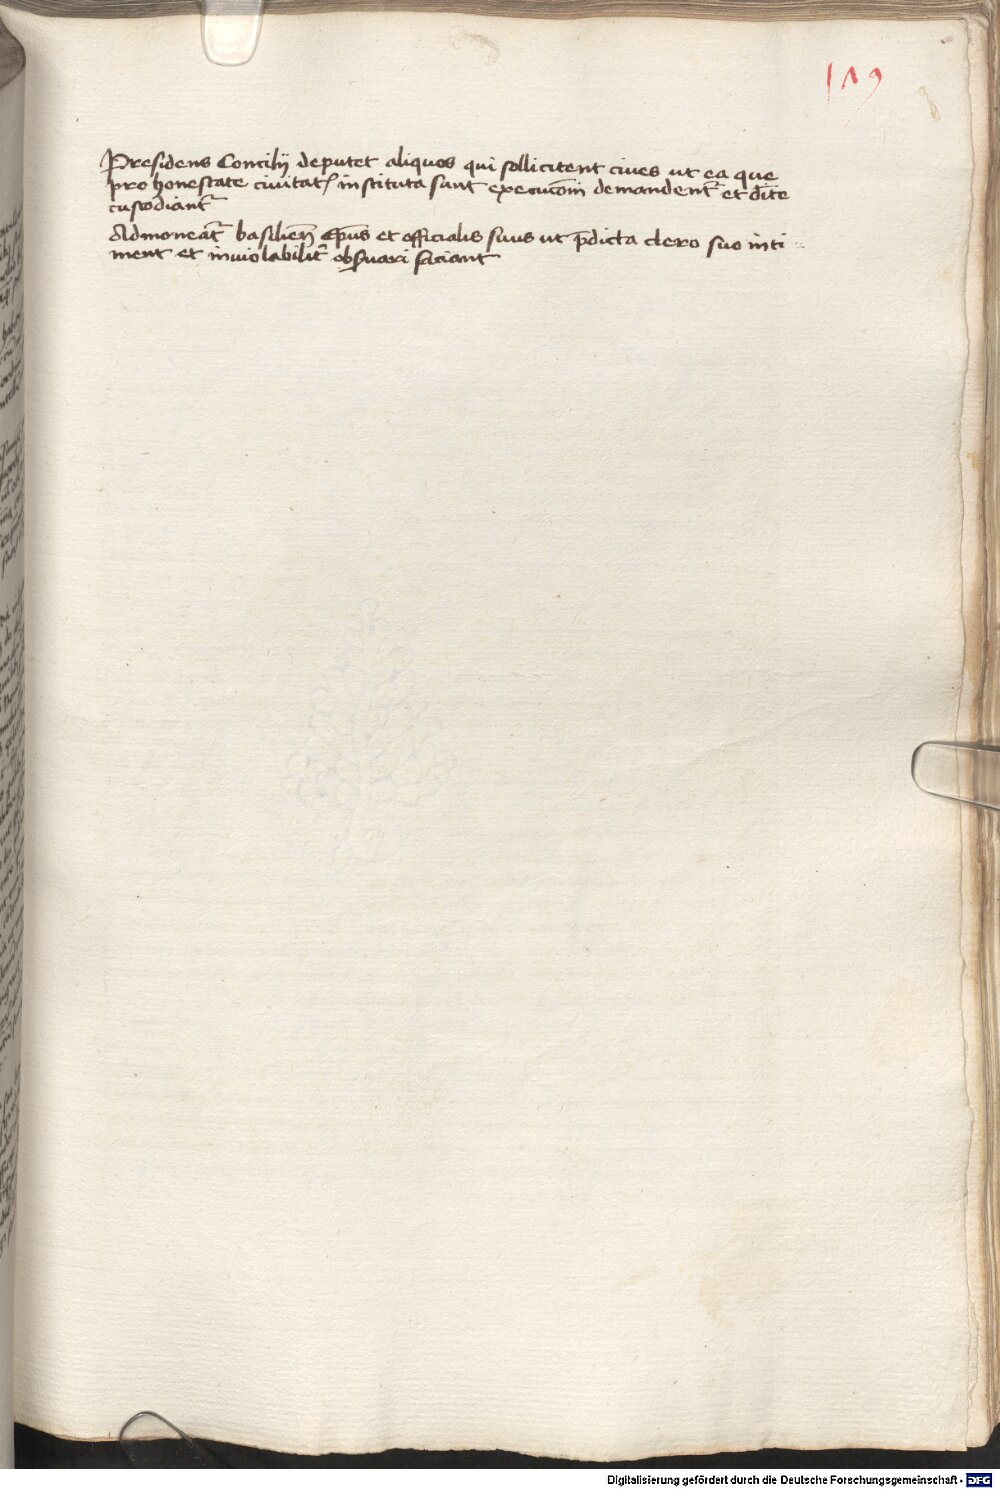 1Λ9
Presidens Concilij deputet aliquos qui sollicitent ciues ut ea que
pro honestate ciuitat͛ instituta sunt execuc̄oni demandent᷑ et d̄ite
custodiant᷑
Admoneat᷑ basilien̄ ep̄us et officialis suus ut p̄dicta clero suo inti
ment et inuiolabilit᷑ obs̄uari faciant
Digitalisierung gefördert durch die Deutsche Forschungsgemeinschaft - DFG